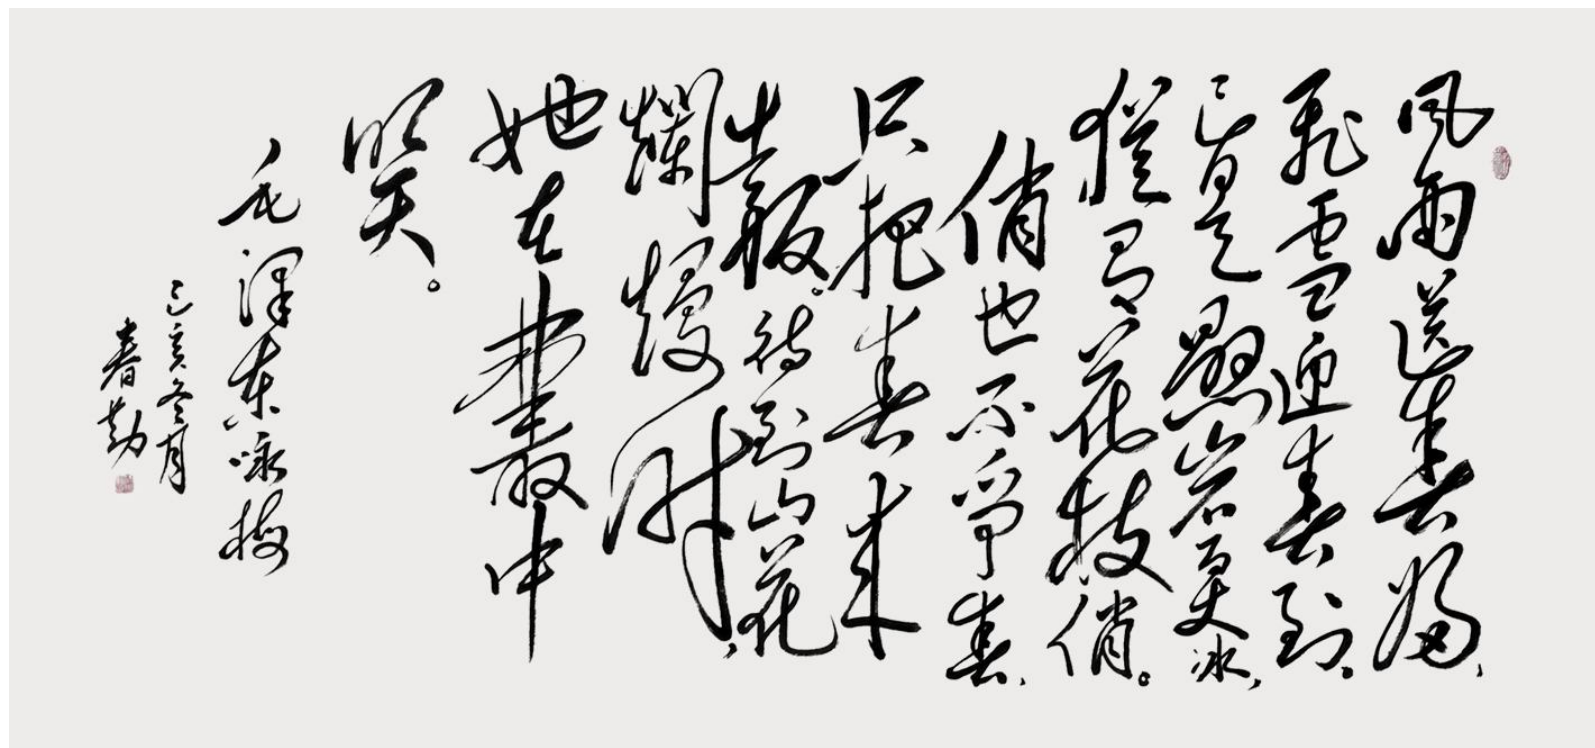 风雨送春归，
飞雪迎春到。
已是懸岩百丈冰，
犹有花枝俏。
俏也不争春，
只把春来
報。待到山花
爛熳时，
她在叢中
笑。
毛泽东咏梅
己亥冬月
春勤